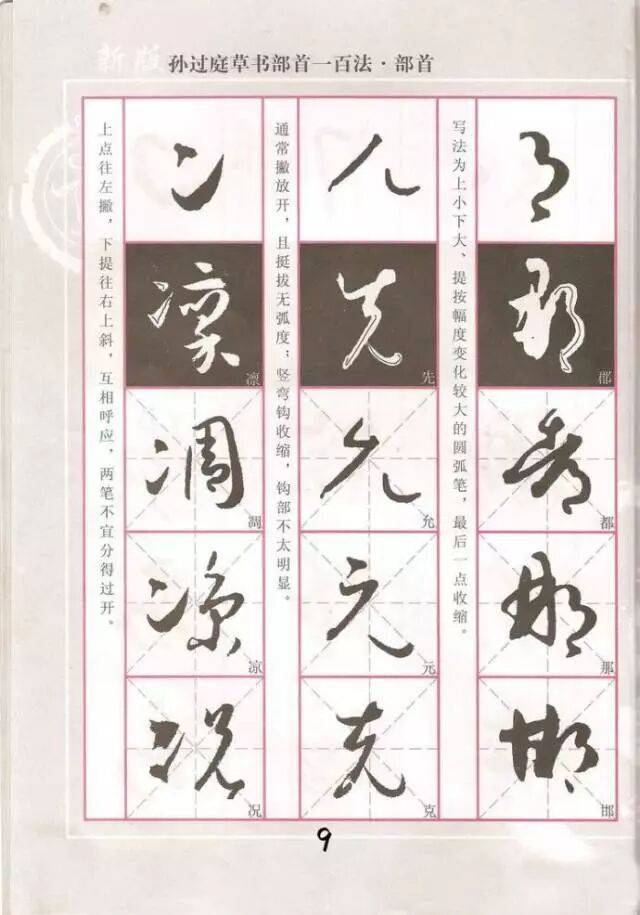 新版 孙过庭草书部首一百法·部首
写法为上小下大、提按幅度变化较大的圆弧笔，最后一点收缩。
阝
郡 郡
都 都
那 那
邯 邯
通常撇放开，且挺拔无弧度；竖弯钩收缩，钩部不太明显。
儿
先 先
允 允
元 元
克 克
上点往左撇，下提往右上斜，互相呼应，两笔不宜分得过开。
冫
凛 凛
凋 凋
凉 凉
况 况
9